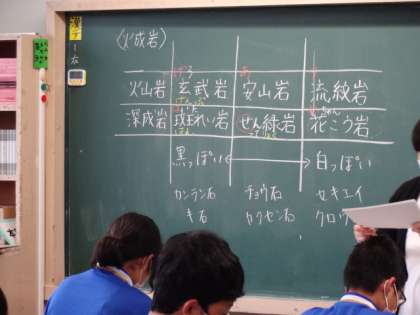 〈火成岩〉
火山岩 玄武岩 安山岩 流紋岩
深成岩 斑れい岩 せん緑岩 花こう岩
黒っぽい ←→ 白っぽい
カンラン石 チョウ石 セキエイ
キ石 カクセン石 クロウ